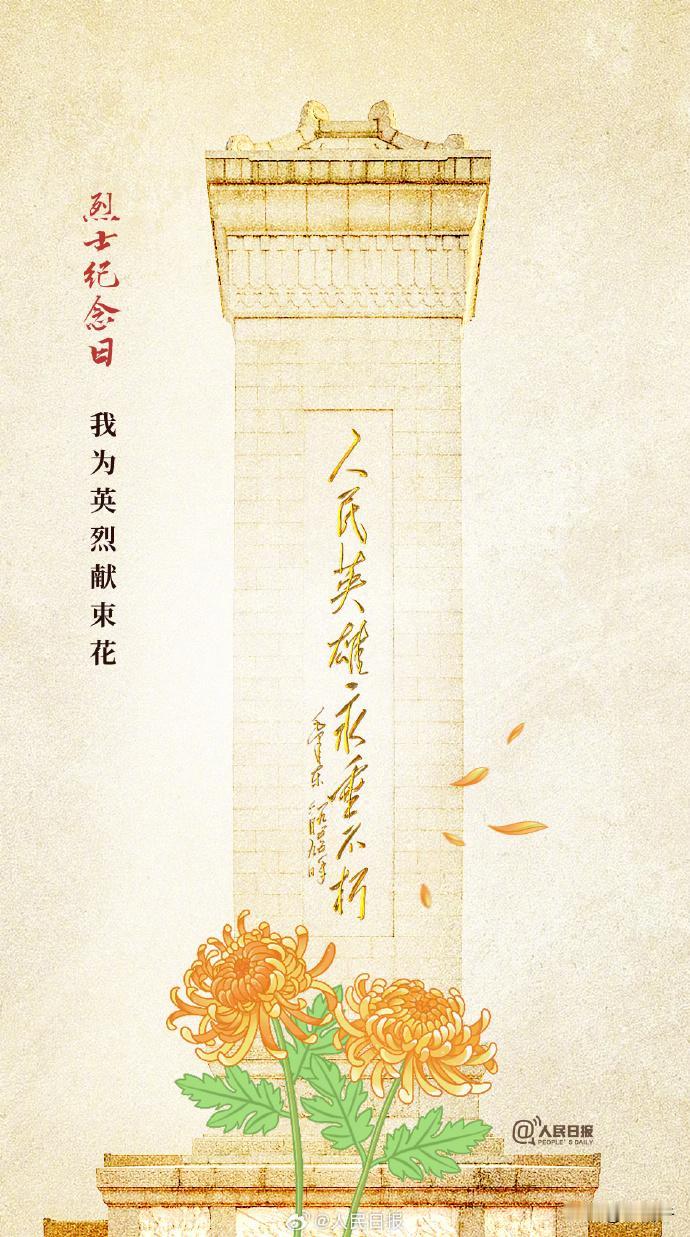 烈士纪念日
我为英烈献束花
人民英雄永垂不朽
毛泽东
@人民日报
PEOPLE'S DAILY
@人民日报